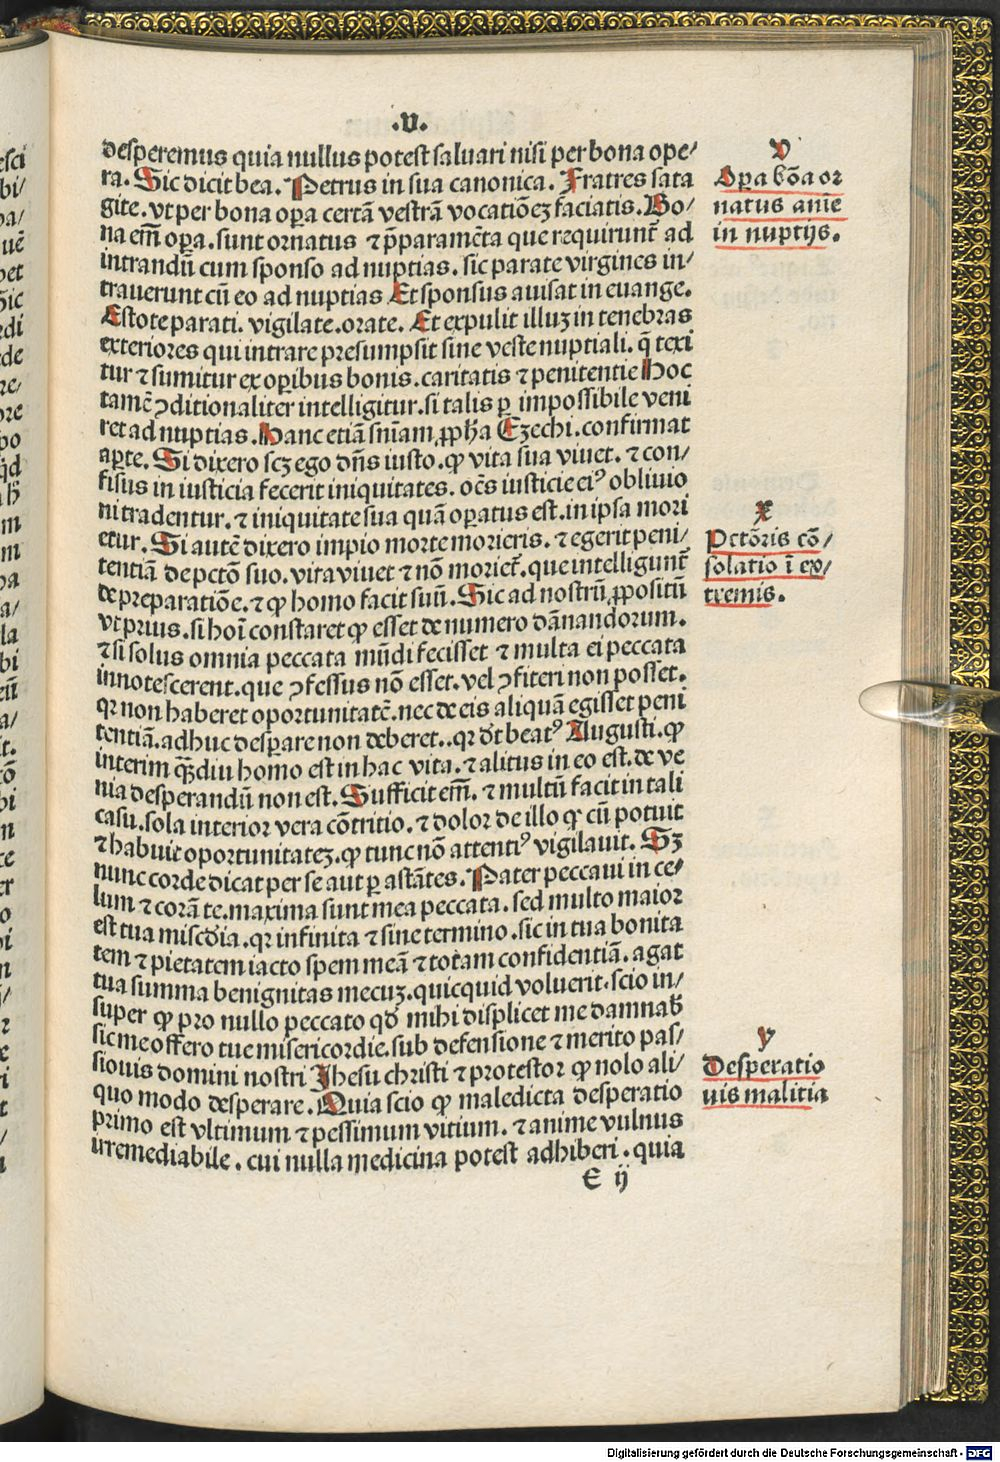 .V.
desperemus quia nullus potest saluari nisi per bona ope⸗
ra. Sic dicit bea. Petrus in sua canonica. Fratres sata
gite. vt per bona oꝑa certā vestrā vocatiōeꝫ faciatis. Bo⸗
na em̄ oꝑa. sunt ornatus ⁊ p̄paramēta que requirunt̄ ad
intrandū cum sponso ad nuptias. sic parate virgines in⸗
trauerunt cū eo ad nuptias Et sponsus auisat in euange.
Estote parati. vigilate. orate. Et expulit illuꝫ in tenebras
exteriores qui intrare presumpsit sine veste nuptiali. q̄ texi
tur ⁊ sumitur ex oꝑibus bonis. caritatis ⁊ penitentie Hoc
tamē ꝯditionaliter intelligitur. si talis ꝑ impossibile veni
ret ad nuptias. Hanc etiā sn̄iam ꝓph̄a Ezechi. confirmat
aꝑte. Si dixero scꝫ ego dn̄s iusto. ꝙ vita sua viuet. ⁊ con⸗
fisus in iusticia fecerit iniquitates. oēs iusticie eiꝰ obliuio
ni tradentur. ⁊ iniquitate sua quā oꝑatus est. in ipsa mori
etur. Si autē dixero impio morte morieris. ⁊ egerit peni⸗
tentiā de pctō suo. vita viuet ⁊ nō moriet̄. que intelligunt̄
de preparatiōe. ⁊ ꝙ homo facit suū. Sic ad nostrū ꝓpositū
vt prius. si hoī constaret ꝙ esset de numero dānandorum.
⁊ si solus omnia peccata mūdi fecisset ⁊ multa ei peccata
innotescerent. que ꝯfessus nō esset. vel ꝯfiteri non posset.
qꝛ non haberet oportunitatē. nec de eis aliquā egisset peni
tentiā. adhuc desꝑare non deberet.. qꝛ dt̄ beatꝰ Augusti. ꝙ
interim qꝫ̄diu homo est in hac vita. ⁊ alitus in eo est. de ve
nia desperandū non est. Sufficit em̄. ⁊ multū facit in tali
casu. sola interior vera cōtritio. ⁊ dolor de illo ꝙ cū potuit
⁊ habuit oportunitateꝫ. ꝙ tunc nō attentiꝰ vigilauit. Sꝫ
nunc corde dicat per se aut ꝑ astātes. Pater peccaui in ce⸗
lum ⁊ corā te. maxima sunt mea peccata. sed multo maior
est tua misc̄dia. qꝛ infinita ⁊ sine termino. sic in tua bonita
tem ⁊ pietatem iacto spem meā ⁊ totam confidentiā. agat
tua summa benignitas mecuꝫ. quicquid voluerit. scio in⸗
super ꝙ pro nullo peccato qd̄ mihi displicet me damnab̄
sic me offero tue misericordie. sub defensione ⁊ merito pas⸗
sionis domini nostri Jhesu christi ⁊ protestor ꝙ nolo ali⸗
quo modo desperare. Quia scio ꝙ maledicta desperatio
primo est vltimum ⁊ pessimum vitium. ⁊ anime vulnus
irremediabile. cui nulla medicina potest adhiberi. quia
E ij
v
Oꝑa bōa or
natus anīe
in nuptijs.
x
Pctōris cō⸗
solatio ī ex⸗
tremis.
y
Desperatio
nis malitia
Digitalisierung gefördert durch die Deutsche Forschungsgemeinschaft - DFG